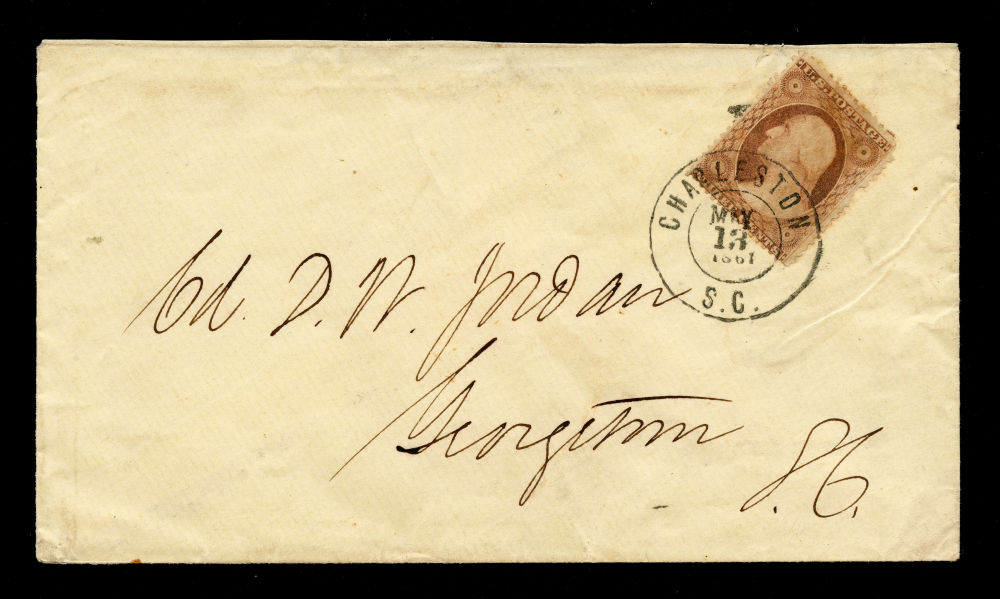 U.S. POSTAGE
CHARLESTON
MAY
13
1861
S.C.
Col. D. W. Jordan
Georgetown
S.C.